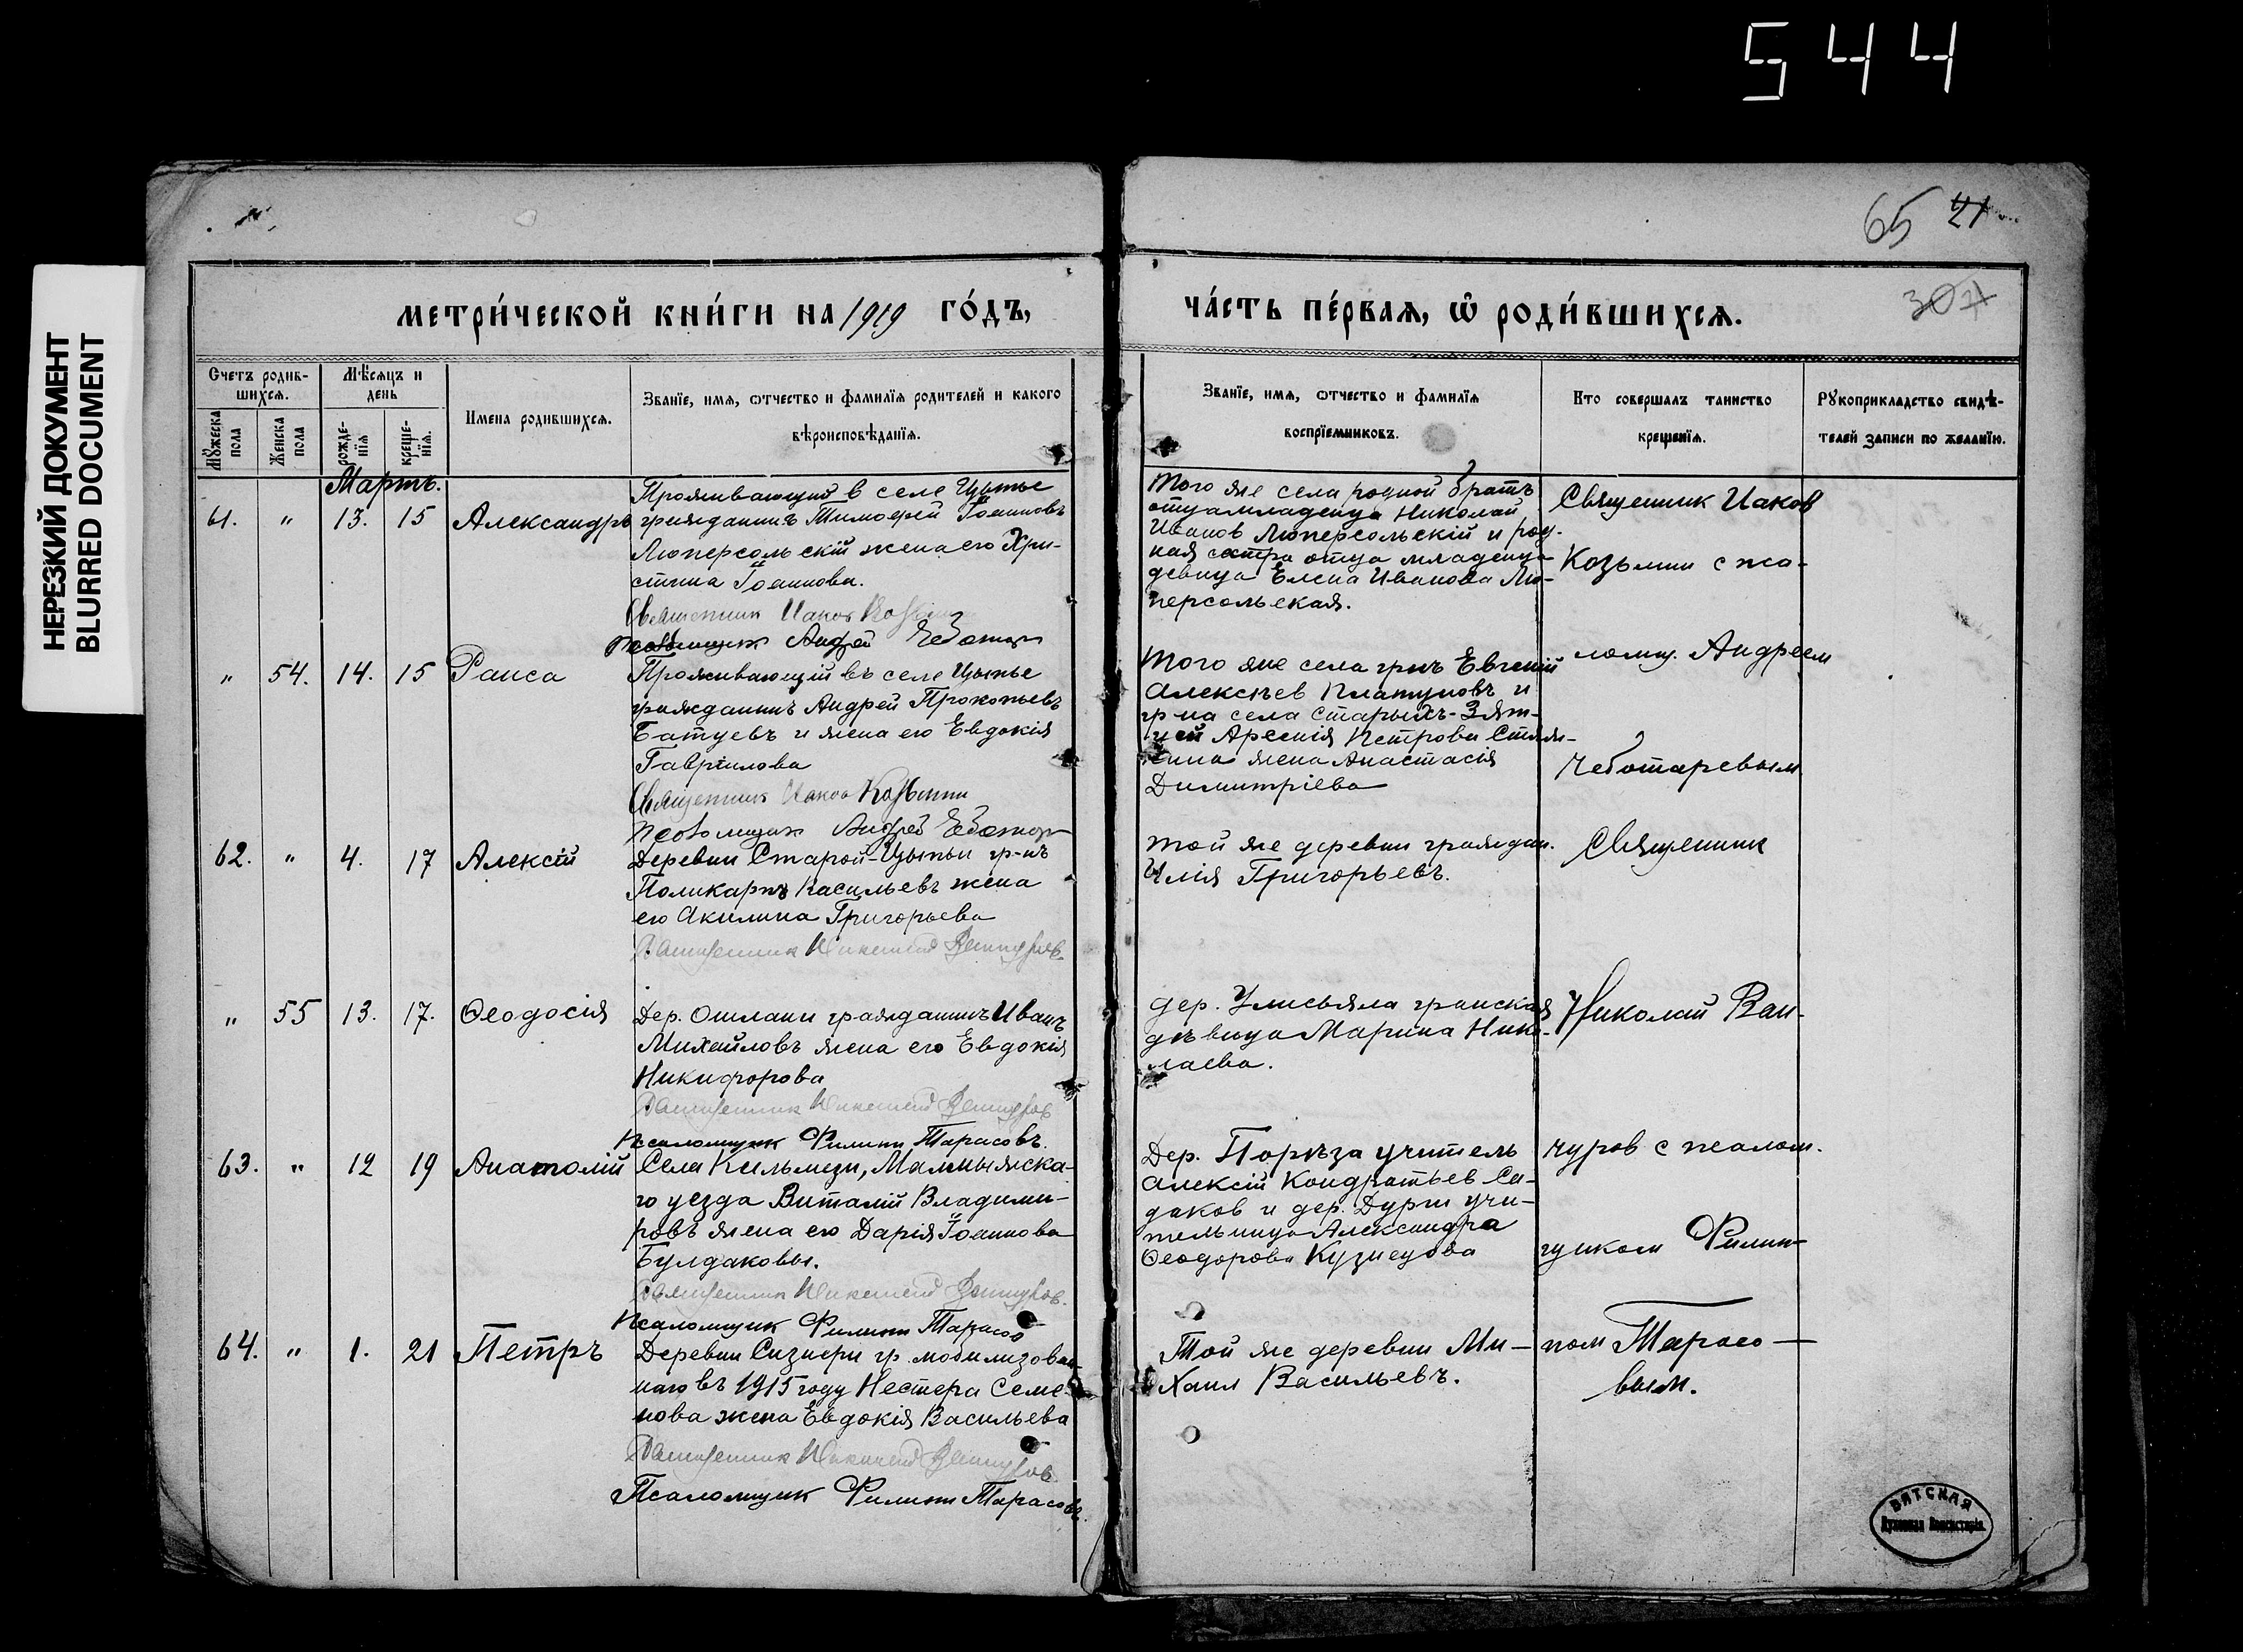 544
НЕРЕЗКИЙ ДОКУМЕНТ
BLURRED DOCUMENT
65 21
307
МЕТРИ́ЧЕСКОЙ КНИ́ГИ НА 1919 ГО́ДЪ,
ЧА́СТЬ ПЕ́РВАЯ, Ѡ РОДИ́ВШИХСЯ.
Счетъ родив-
шихся.
Мѣсяцъ и
день
Мꙋжеска
пола
Женска
пола
рожде-
нїя
креще-
нїя.
Имена родившихся.
Званїе, имя, ѡтчество и фамилїя родителей и какого
вѣроисповѣданїя.
Званїе, имя, ѡтчество и фамилїя
воспрїемниковъ.
Кто совершалъ таинство
крещенїя.
Рꙋкоприкладство свидѣ-
телей записи по желанїю.
Мартъ.
61. " 13. 15 Александръ
Проживающий в селе Цыпье
гражданинъ Тимофей Іоанновъ
Люперсольскій жена его Хри-
стина Іоаннова.
Священник Иаков Козьмин
Псаломщик Андрей Чеботар
Того же села родной братъ
отца младенца Николай
Иванов Люперсольскій и род-
ная сестра отца младенца
девица Елена Иванова Лю-
персольская.
Священник Иаков
Козьмин с пса-
" 54. 14. 15 Раиса
Проживающій въ селе Цыпье
гражданинъ Андрей Прокопьевъ
Батуевъ и жена его Евдокія
Гавріилова
Священник Иаков Козьмин
Псаломщик Андрей Чеботар
Того же села гр-нъ Евгений
Алексѣев Платуновъ и
гр-на села Старыхъ-Зят-
цей Арсенія Петрова
жена Анастасія
Димитріева
ломщ. Андреем
Чеботаревым
62. " 4. 17 Алексій
Деревни Старой-Цыпьи гр-нъ
Поликарпъ Васильевъ жена
его Акилина Григорьева
Священник
Той же деревни граждан.
Илія Григорьевъ.
Священник
" 55 13. 17. Ѳеодосія
Дер. Ошлани гражданинъ Иванъ
Михайловъ жена его Евдокія
Никифорова
Священник
Псаломщик Филипп Тарасовъ.
дер. Улисьяла гр-нская
дѣвица Марина Нико-
лаева.
Николай Ван-
63. " 12 19 Анатолій
Села Кильмези, Малмыжска-
го уезда Виталій Владими-
ровъ жена его Дарія Іоаннова
Булдаковы.
Священник
Псаломщик Филипп Тарасов
Дер. Порѣза учитель
Алексій Кондратьев Си-
даков и дер. Дурги учи-
тельница Александра
Ѳеодорова Кузнецова
чуров с псалом-
щиком Филип-
64. " 1. 21 Петръ
Деревни Сизнери гр. мобилизован-
наго въ 1915 году Нестера Семе-
нова жена Евдокія Васильева
Священник
Псаломщик Филипп Тарасовъ.
Той же деревни Ми-
хаил Васильевъ.
пом Тарасо-
вым.
ВЯТСКАЯ
Духовная Консисторія.